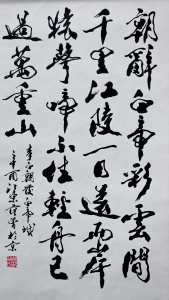 朝辭白帝彩雲間
千里江陵一日還兩岸
猿聲啼不住輕舟已
過萬重山
李白朝發白帝城